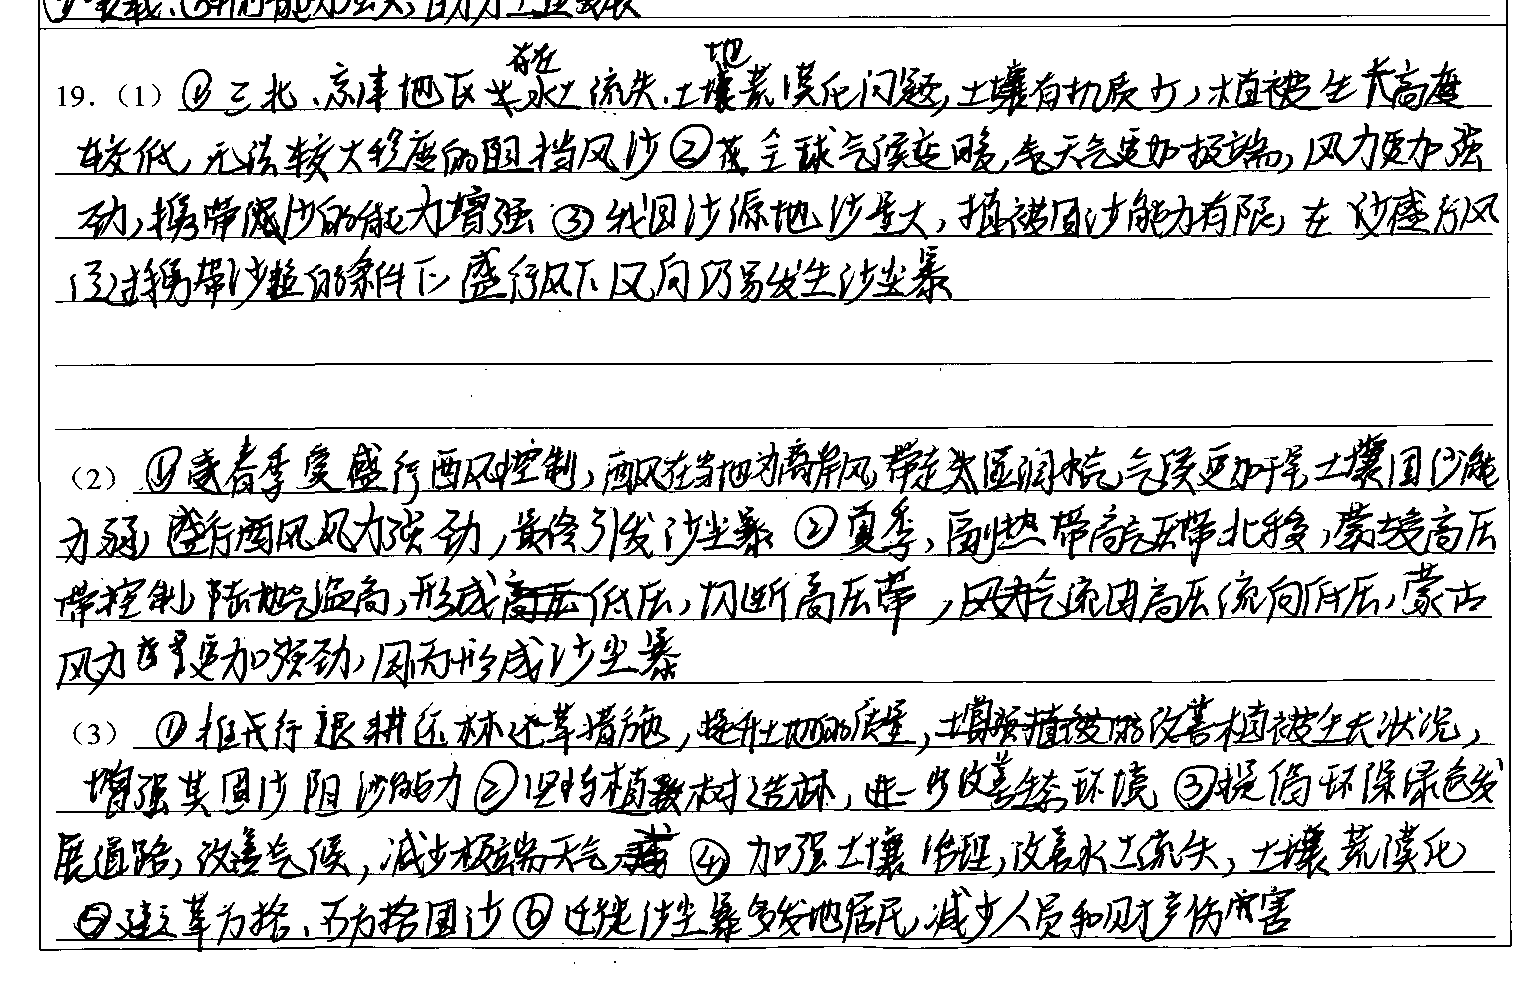 19.（1）①三北、京津地区存在水土流失、土地荒漠化问题，土壤有机质少，植被生长高度
较低，无法较大程度的阻挡风沙②在全球气候变暖，天气更加极端，风力更加强
劲，携带泥沙的能力增强 ③我国沙源地沙量大，植被固沙能力有限，在盛行风
经过携带沙粒的条件下 盛行风下风向仍易发生沙尘暴
（2）①春季受盛行西风控制，西风在当地为离岸风，带走大湿润水汽，气候更加干旱，土壤固沙能
力弱，盛行西风风力强劲，最终引发沙尘暴 ②夏季，副热带高气压带北移，蒙古高压
带控制，陆地气温高，形成低压，切断高压带，气流因高压流向低压，蒙古
风力更加强劲，因而形成沙尘暴
（3）①推行退耕还林还草措施，提升土地的质量，改善植被生长状况，
增强其固沙阻沙能力②坚持植树造林，进一步改善生态环境 ③提倡环保绿色发
展道路，改善气候，减少极端天气 ④加强土壤治理，改善水土流失，土壤荒漠化
⑤建立草方格、石方格固沙⑥迁徙沙尘暴多发地居民，减少人员和财产伤害